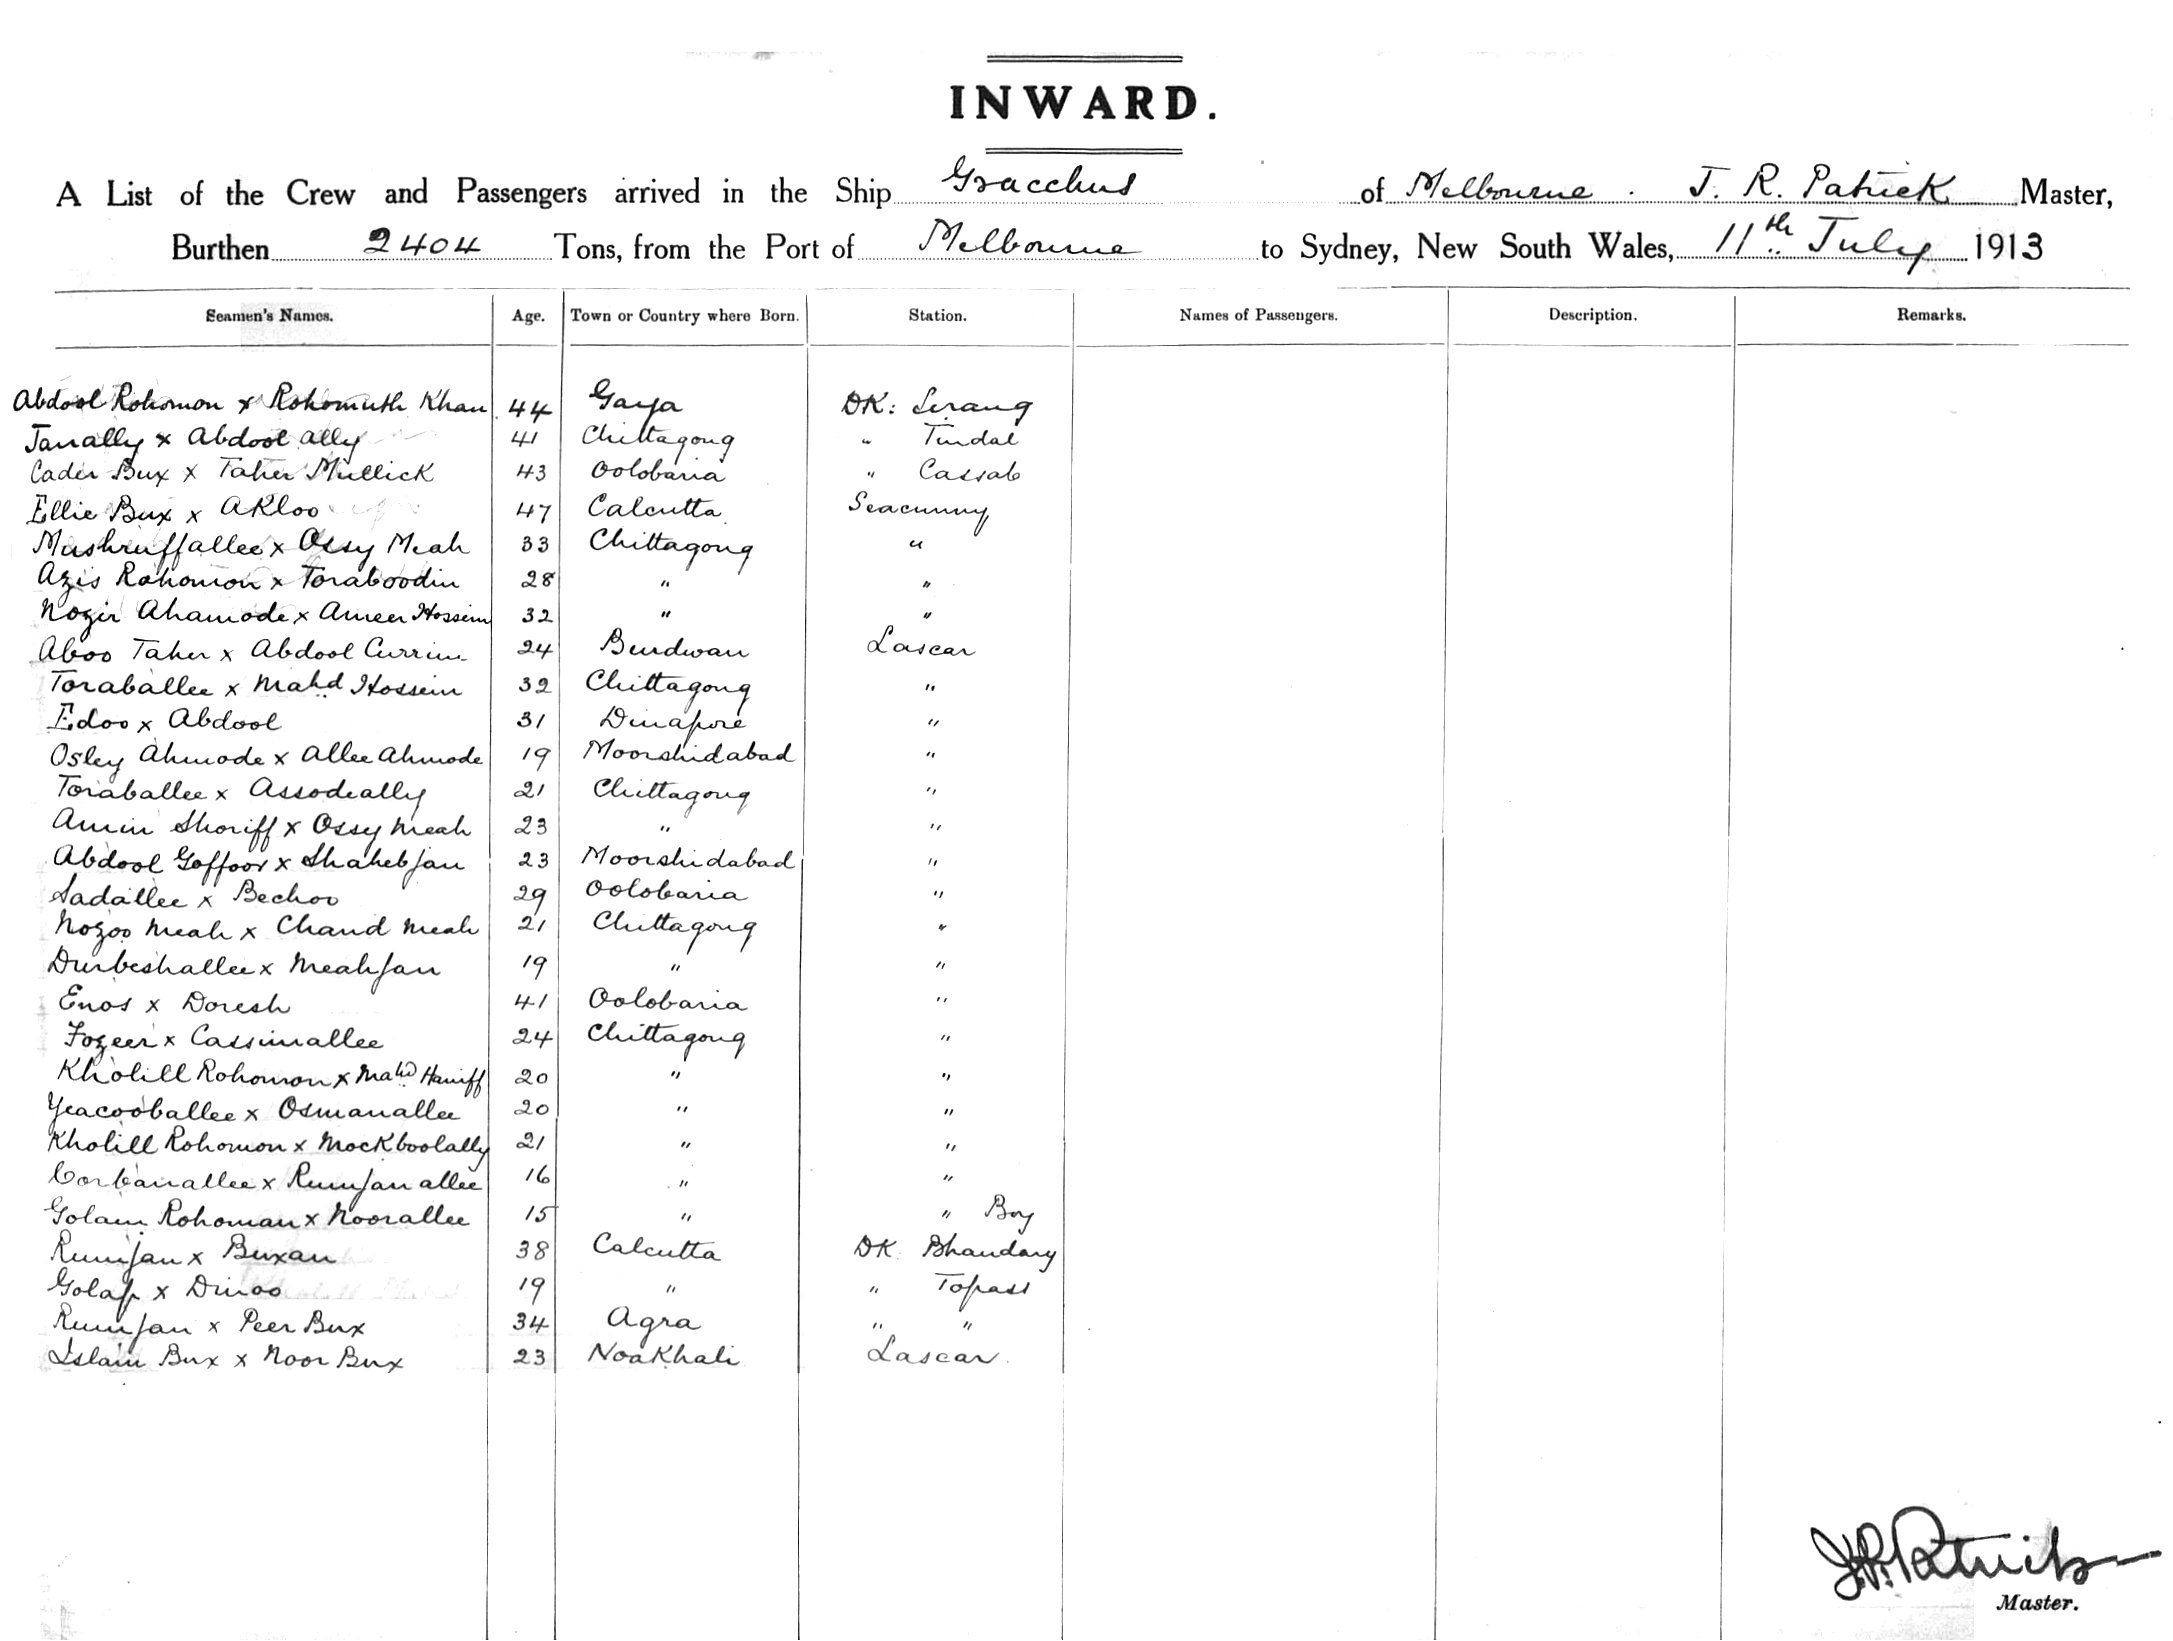 INWARD.
A List of the Crew and Passengers arrived in the Ship Gracchus of Melbourne. J. R. Patrick Master,
Burthen 2404 Tons, from the Port of Melbourne to Sydney, New South Wales, 11th July 1913
Seamen's Names. Age. Town or Country where Born. Station. Names of Passengers. Description. Remarks.
Abdool Rohomon x Rohomuth Khan 44 Gaya DK: Serang
Janally x Abdool ally 41 Chittagong " Tindal
Cader Bux x Taher Mullick 43 Oolobaria " Cassab
Ellie Bux x Akloo 47 Calcutta Seacunny
Mushruffallee x Ossy Meah 33 Chittagong "
Azis Rohomon x Toraboodin 28 " "
Nozir Ahamode x Ameer Hossein 32 " "
Aboo Taher x Abdool Currim 24 Burdwan Lascar
Toraballee x Mahd Hossein 32 Chittagong "
Edoo x Abdool 31 Dinapore "
Osley Ahmode x Allee Ahmode 19 Moorshidabad "
Toraballee x Assodeally 21 Chittagong "
Amin Shoriff x Ossy Meah 23 " "
Abdool Goffoor x Shahebjan 23 Moorshidabad "
Sadallee x Bechoo 29 Oolobaria "
Nozoo Meah x Chand Meah 21 Chittagong "
Durbeshallee x Meahjan 19 " "
Enos x Doresh 41 Oolobaria "
Fozeer x Cassimallee 24 Chittagong "
Kholill Rohomon x Mahd Haniff 20 " "
Yeacooballee x Osmanallee 20 " "
Kholill Rohomon x Mockboolally 21 " "
Corbanallee x Rumjanallee 16 " "
Golam Rohoman x Noorallee 15 " " Boy
Rumjan x Buxan 38 Calcutta DK Bhandary
Golap x Dinoo 19 " " Topass
Rumjan x Peer Bux 34 Agra " "
Islam Bux x Noor Bux 23 Noakhali Lascar.
J. R. Patrick
Master.